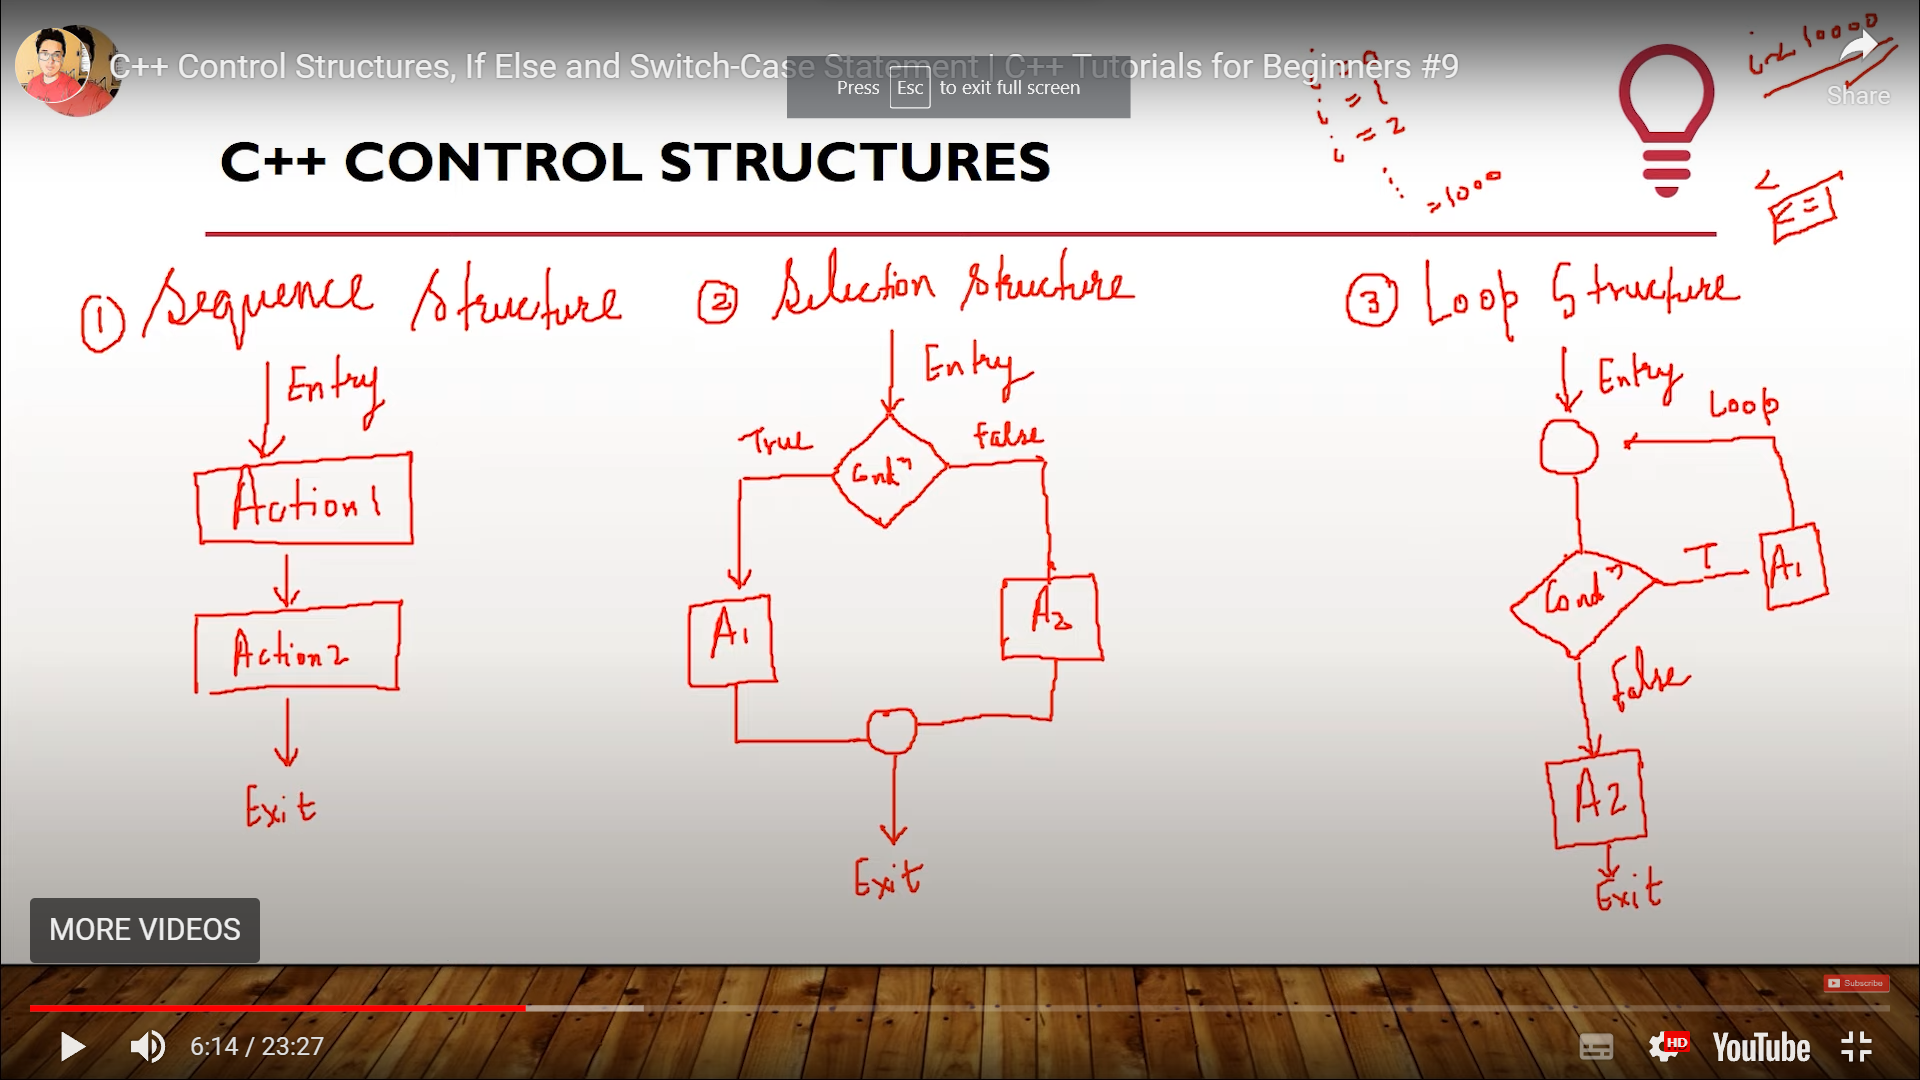 C++ Control Structures, If Else and Switch-Case Statement | C++ Tutorials for Beginners #9
Press Esc to exit full screen
Share
= 1
i = 2
= 1000
i < 1000
<
<=
C++ CONTROL STRUCTURES
① Sequence Structure
Entry
Action 1
Action 2
Exit
② Selection Structure
Entry
True
False
Condⁿ
A1
A2
Exit
③ Loop Structure
Entry
Loop
Condⁿ
T
A1
False
A2
Exit
MORE VIDEOS
Subscribe
6:14 / 23:27
HD
YouTube